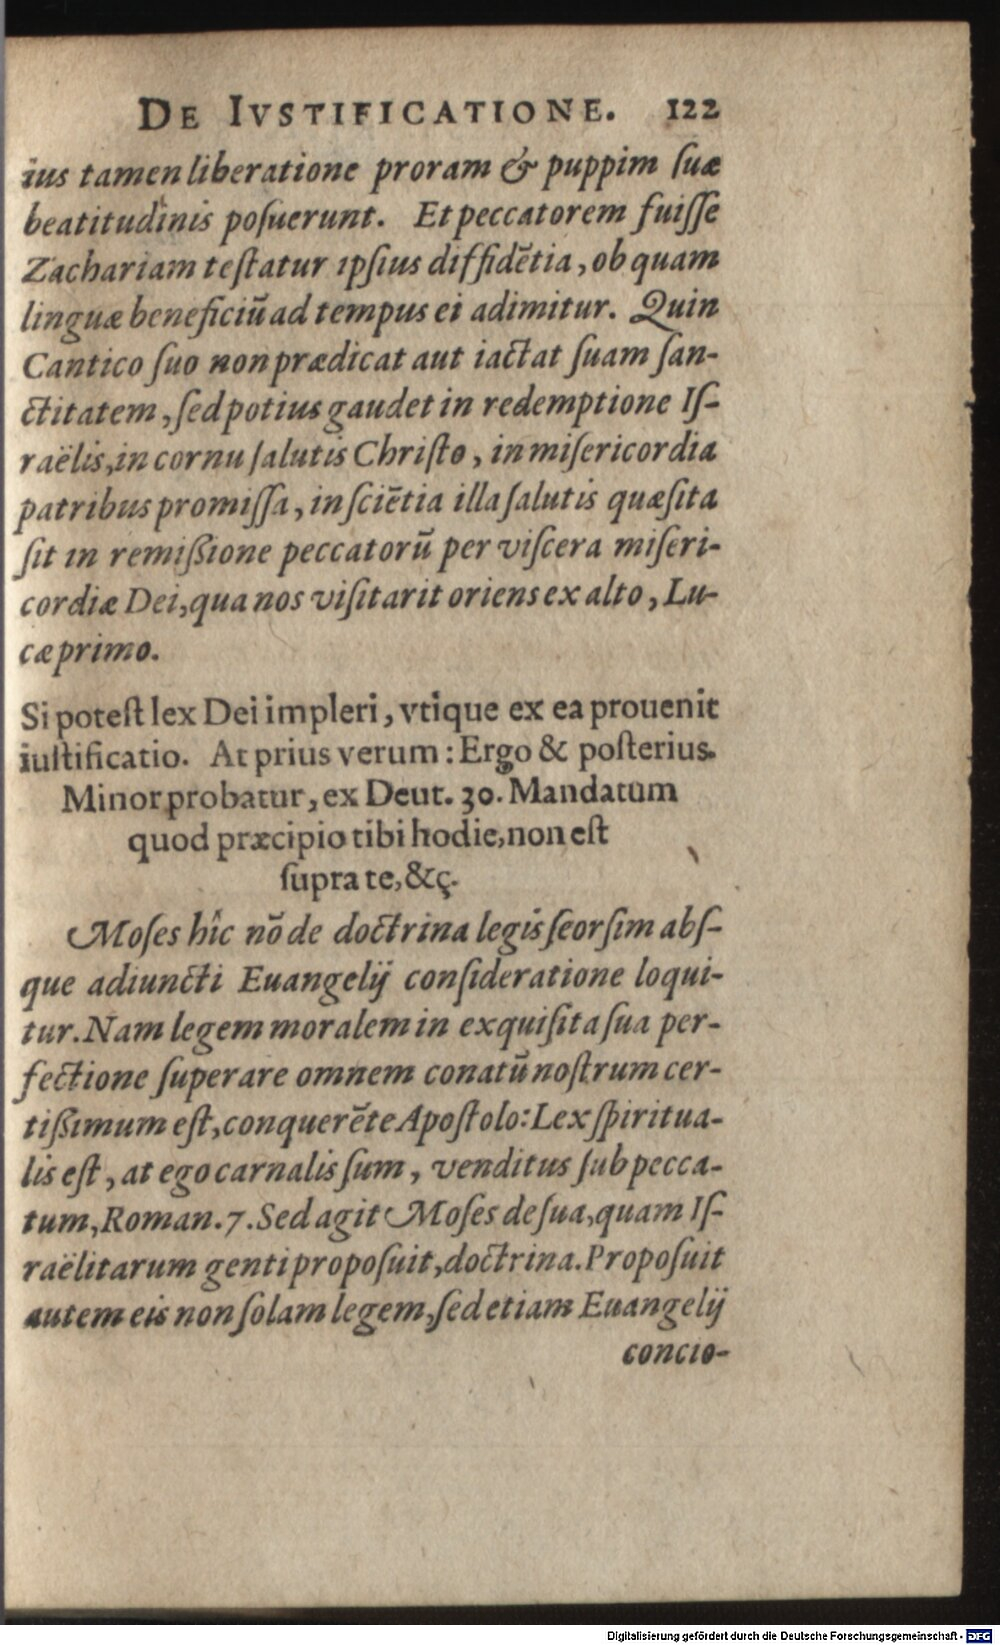 DE IVSTIFICATIONE. 122
ius tamen liberatione proram & puppim ſuæ
beatitudinis poſuerunt. Et peccatorem fuiſſe
Zachariam teſtatur ipſius diffidẽtia, ob quam
linguæ beneficiũ ad tempus ei adimitur. Quin
Cantico ſuo non prædicat aut iactat ſuam ſan-
ctitatem, ſed potius gaudet in redemptione Iſ-
raëlis, in cornu ſalutis Chriſto, in miſericordia
patribus promiſſa, in ſciẽtia illa ſalutis quæ ſita
ſit in remißione peccatorũ per viſcera miſeri-
cordiæ Dei, qua nos viſitarit oriens ex alto, Lu-
cæ primo.
Si poteſt lex Dei impleri, vtique ex ea prouenit
iuſtificatio. At prius verum: Ergo & poſterius.
Minor probatur, ex Deut. 30. Mandatum
quod præcipio tibi hodie, non eſt
ſupra te, &ç.
Moſes hîc nõ de doctrina legis ſeorſim abſ-
que adiuncti Euangelij conſideratione loqui-
tur. Nam legem moralem in exquiſita ſua per-
fectione ſuperare omnem conatũ noſtrum cer-
tißimum eſt, conquerẽte Apoſtolo: Lex ſpiritua-
lis eſt, at ego carnalis ſum, venditus ſub pecca-
tum, Roman. 7. Sed agit Moſes de ſua, quam Iſ-
raëlitarum genti propoſuit, doctrina. Propoſuit
autem eis non ſolam legem, ſed etiam Euangelij
concio-
Digitalisierung gefördert durch die Deutsche Forschungsgemeinschaft - DFG